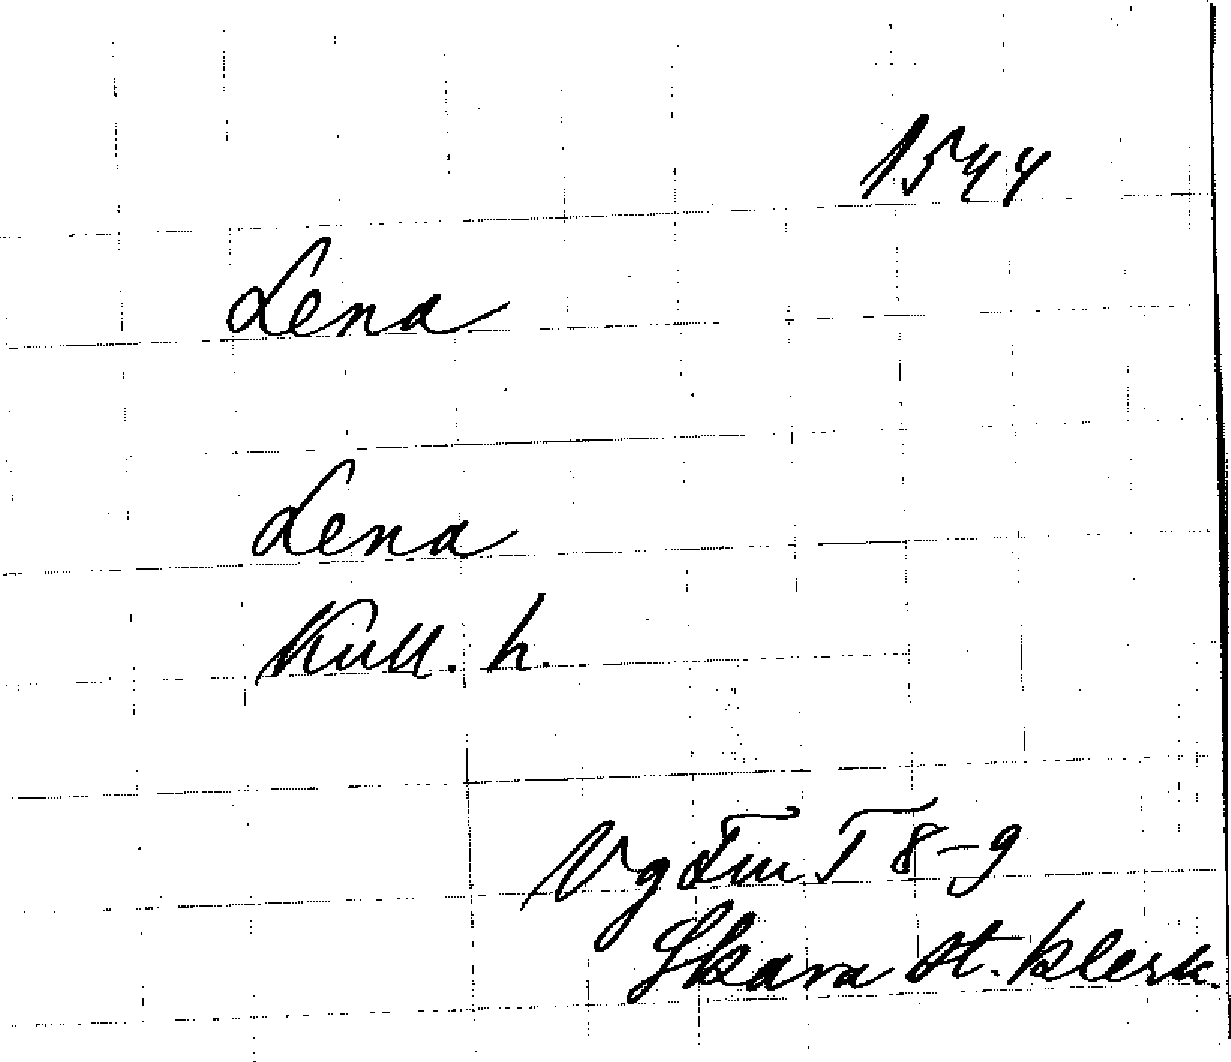 1544
Lena
Lena
Kull. h.
Vg Fm I 8-9
Skara st. klerk.